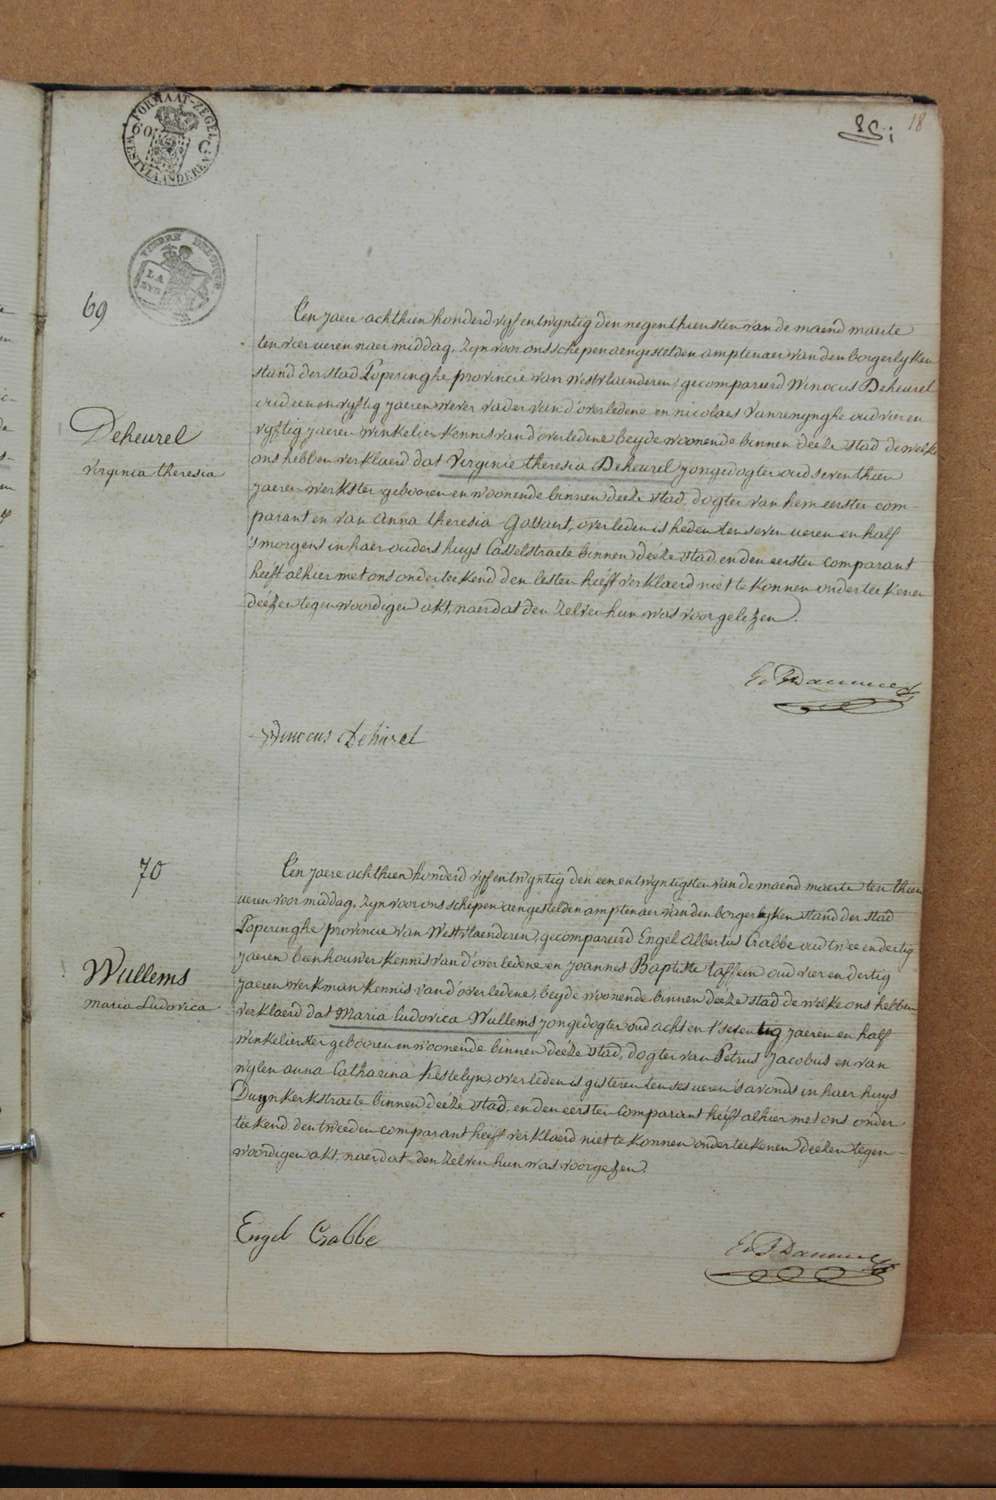 18
FORMAAT-ZEGEL
60 C
WESTVLAANDEREN
69
Deheurel
Virginia theresia
Een jaere achthien honderd vyf en twyntig den negenthiensten van de maend maerte
ten vier ueren naer middag, zyn voor ons schepen aengestelden amptenaer van den borgerlyken
stand der stad Poperinghe provincie van Westvlaenderen, gecompareerd Winocus Deheurel
oud een en vyftig jaeren wever vader van d'overledene en nicolaes Vanrenynghe oud vier en
vyftig jaeren winkelier kennis van d'overledene beyde woonende binnen deeze stad dewelke
ons hebben verklaerd dat Virginie theresia Deheurel jongedogter oud seventhien
jaeren werkster gebooren en woonende binnen deeze stad, dogter van hem eersten com-
parant en van anna theresia Gossart, overleden is heden ten seven ueren en half
's morgens in haer ouders huys Casselstraete binnen deeze stad en den eersten comparant
heeft alhier met ons onderteekend den lesten heeft verklaerd niet te konnen onderteekenen
deezen tegenwoordigen akt, naer dat den zelven hun was voorgelezen.
Winocus Dehurel
70
Wullems
maria Ludovica
Een jaere achthien honderd vyf en twyntig den een en twyntigsten van de maend maerte ten thien
ueren voor middag, zyn voor ons schepen aengestelden amptenaer van den borgerlyken stand der stad
Poperinghe provincie van Westvlaenderen, gecompareerd Engel Albertus Crabbe oud twee en dertig
jaeren beenhouwer kennis van d'overledene en Joannes Baptiste taffein oud vier en dertig
jaeren werkman kennis van d'overledene, beyde woonende binnen deeze stad dewelke ons hebben
verklaerd dat Maria Ludovica Wullems jongedogter oud acht en t'seventig jaeren en half
winkelierster gebooren en woonende binnen deeze stad, dogter van Petrus Jacobus en van
wylen anna Catharina Kestelyn, overleden is gisteren ten ses ueren 's avonds in haer huys
Duynkerkstraete binnen deeze stad, en den eersten comparant heeft alhier met ons onder
teekend, den tweeden comparant heeft verklaerd niet te konnen onderteekenen deezen tegen-
woordigen akt, naer dat den zelven hun was voorgezen.
Engel Crabbe